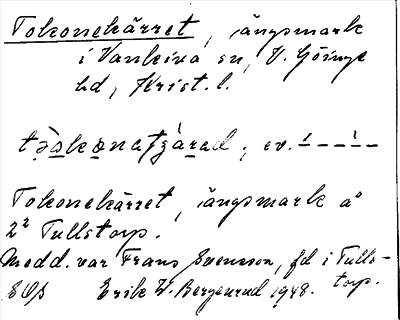 Tokonekärret, ängsmark
i Vankiva sn, V. Göinge
hd, Krist. l.
Tokonekärret, ängsmark å
2² Tullstorp.
Medd. var Frans Svensson, fd i Tulls-
torp.
Erik W. Bergenrud 1948.